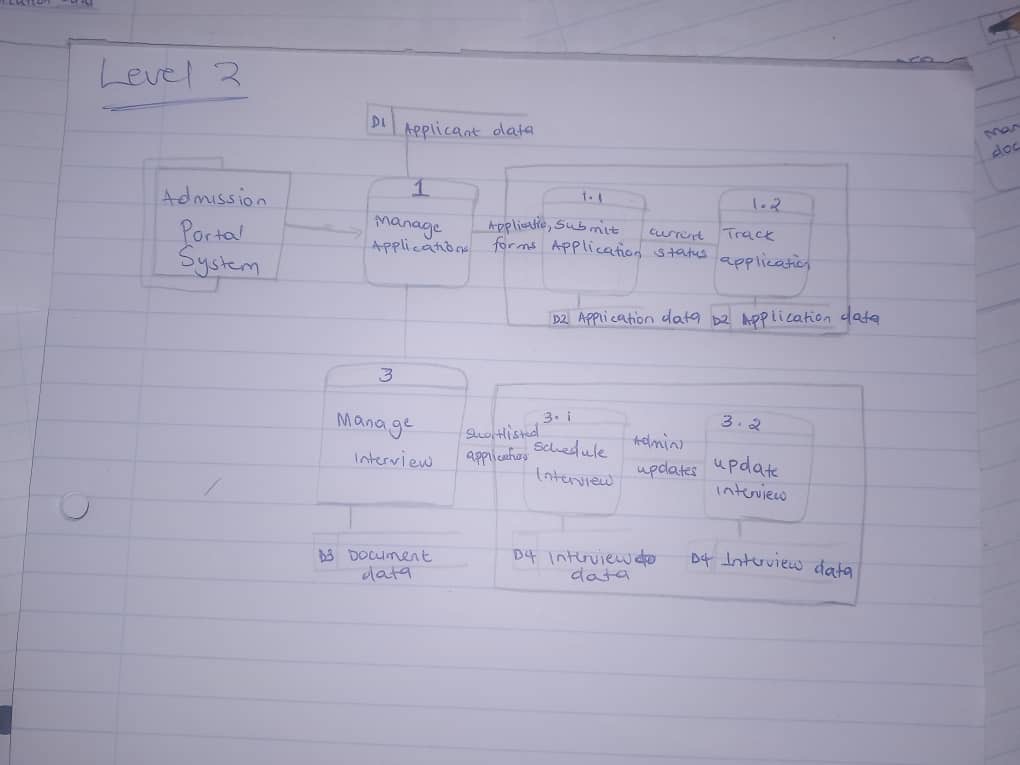 Level 2
D1 Applicant data
Admission
Portal
System
1
Manage
Applications
Application
forms
1.1
Submit
Application
current
status
1.2
Track
application
D2 Application data
D2 Application data
3
Manage
Interview
Shortlisted
application
3.1
Schedule
Interview
Admin
updates
3.2
update
interview
D3 Document
data
D4 Interview
data
D4 Interview data